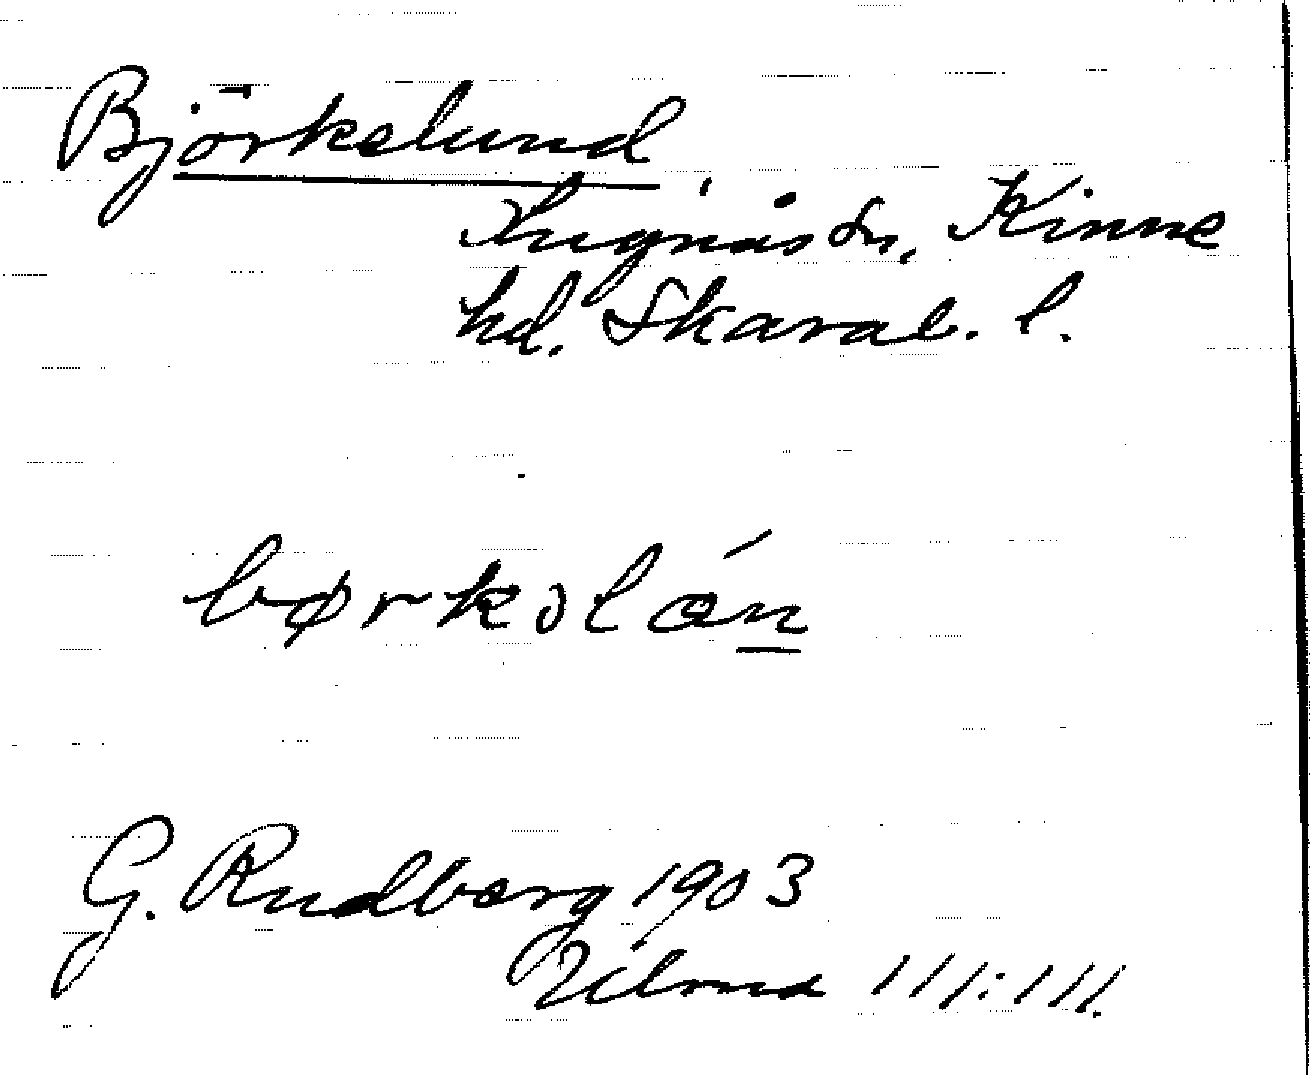 Björkslund
Lugnås sn, Kinne
hd. Skarab. l.
børkslǿn
G. Rudberg 1903
Uilma 111:111.